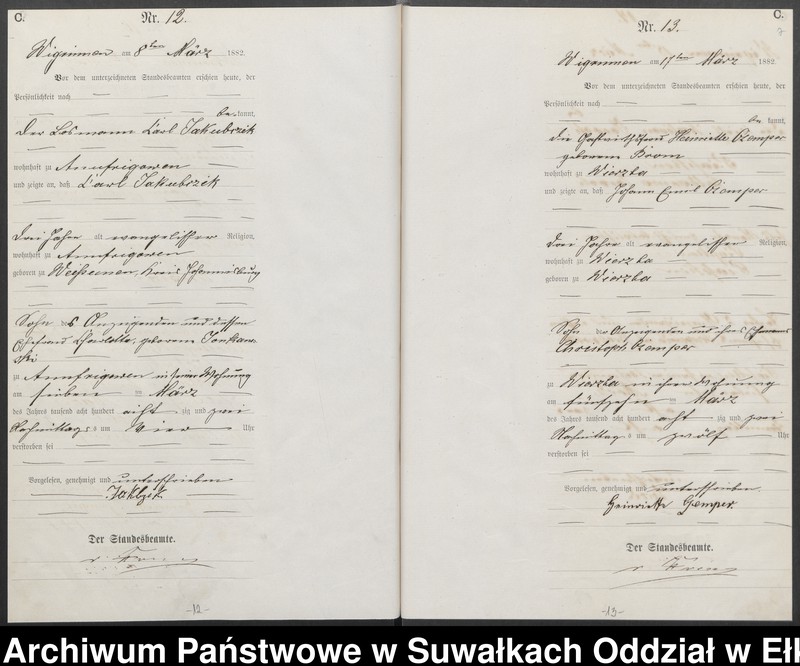 C.
Nr. 12.
am 8ten März 1882.
Vor dem unterzeichneten Standesbeamten erschien heute, der
Persönlichkeit nach
be kannt,
Der Losmann Carl Jakubczik
wohnhaft zu
und zeigte an, daß Carl Jakubczik
drei Jahre alt evangelischer Religion,
wohnhaft zu
geboren zu Kreis Johannisburg
Sohn des Anzeigenden und dessen
Ehefrau Charlotte, geborene
zu in seiner Wohnung
am sieben ten März
des Jahres tausend acht hundert acht zig und zwei
Nachmittags um vier Uhr
verstorben sei
Vorgelesen, genehmigt und unterschrieben
Der Standesbeamte.
-12-
C.
Nr. 13.
am 17ten März 1882.
Vor dem unterzeichneten Standesbeamten erschien heute, der
Persönlichkeit nach
be kannt,
die Gastwirthsfrau Henriette Czemper
geborene
wohnhaft zu Wierzba
und zeigte an, daß Johann Emil Czemper
drei Jahre alt evangelischer Religion,
wohnhaft zu Wierzba
geboren zu Wierzba
Sohn der Anzeigenden und ihres Ehemannes
Christoph Czemper
zu Wierzba in ihrer Wohnung
am fünfzehn ten März
des Jahres tausend acht hundert acht zig und zwei
Nachmittags um zwölf Uhr
verstorben sei
Vorgelesen, genehmigt und unterschrieben.
Heinriette Czemper.
Der Standesbeamte.
-13-
Archiwum Państwowe w Suwałkach Oddział w Eł